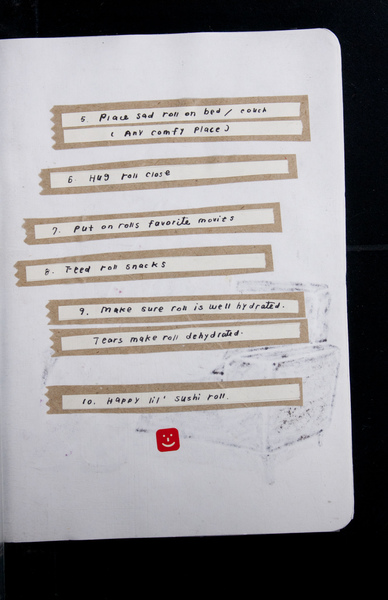 5. Place sad roll on bed / couch
( Any comfy place )
6 Hug roll close
7. Put on rolls favorite movies
8. Feed roll snacks
9. Make sure roll is well hydrated.
Tears make roll dehydrated.
10. Happy lil' sushi roll.